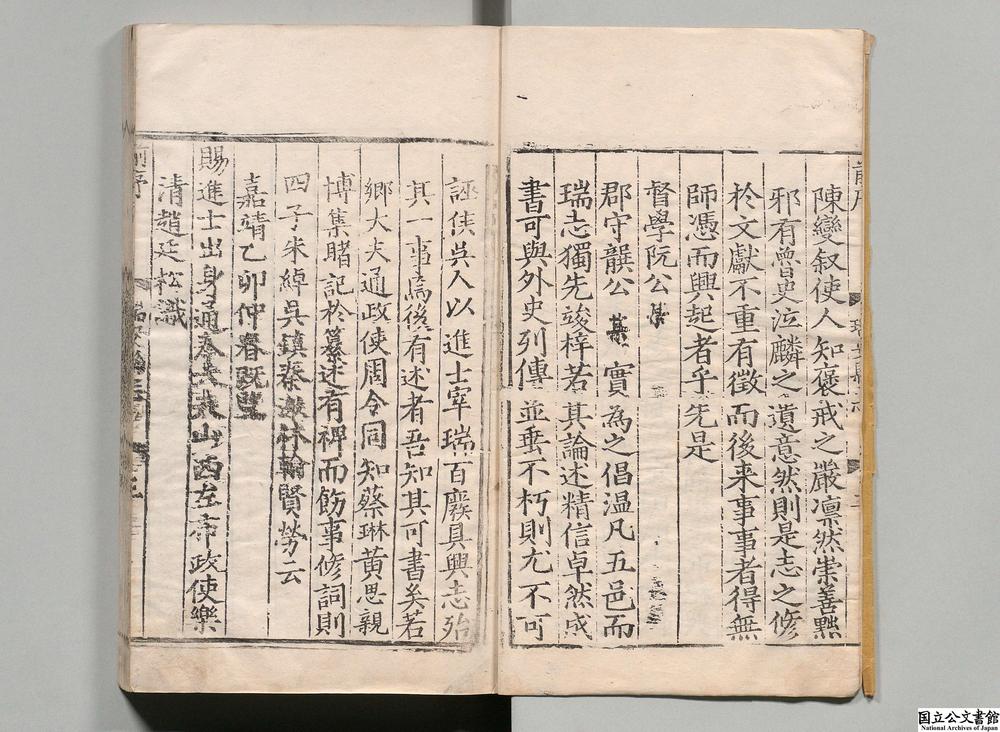 陳變叙使人知褒戒之嚴凛然崇善黜
邪有魯史泣麟之遺意然則是志之修
於文獻不重有徵而後来事事者得無
師憑而興起者乎先是
督學阮公
郡守龔公 實為之倡温凡五邑而
瑞志獨先竣梓若其論述精信卓然成
書可與外史列傳並垂不朽則尤不可
誣侯吳人以進士宰瑞百廢具興志殆
其一事焉後有述者吾知其可書矣若
鄉大夫通政使周令同知蔡琳黄思親
博集賭記於纂述有裨而飭事修詞則
四子朱綽吳鎮秦激林翰賢勞云
嘉靖乙卯仲春既望
賜進士出身通奉大夫山西左布政使樂
清趙廷松識
前序
国立公文書館
National Archives of Japan